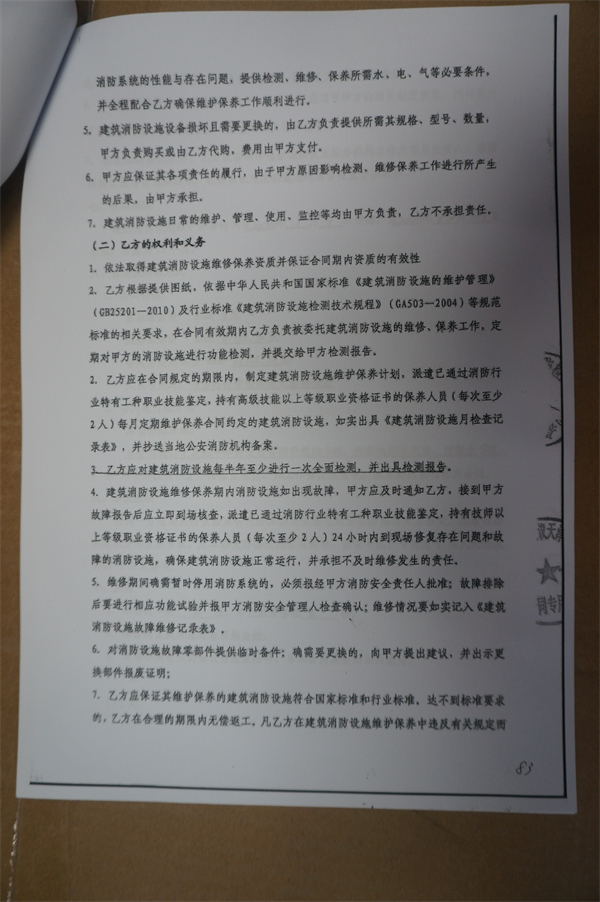 消防系统的性能与存在问题，提供检测、维修、保养所需水、电、气等必要条件，
并全程配合乙方确保维护保养工作顺利进行。
5、建筑消防设施设备损坏且需要更换的，由乙方负责提供所需其规格、型号、数量，
甲方负责购买或由乙方代购，费用由甲方支付。
6、甲方应保证其各项责任的履行，由于甲方原因影响检测、维修保养工作进行所产生
的后果，由甲方承担。
7、建筑消防设施日常的维护、管理、使用、监控等均由甲方负责，乙方不承担责任。
（二）乙方的权利和义务
1、依法取得建筑消防设施维修保养资质并保证合同期内资质的有效性
2、乙方根据提供图纸，依据中华人民共和国国家标准《建筑消防设施的维护管理》
（GB25201—2010）及行业标准《建筑消防设施检测技术规程》（GA503—2004）等规范
标准的相关要求，在合同有效期内乙方负责被委托建筑消防设施的维修、保养工作，定
期对甲方的消防设施进行功能检测，并提交给甲方检测报告。
2、乙方应在合同规定的期限内，制定建筑消防设施维护保养计划，派遣已通过消防行
业特有工种职业技能鉴定，持有高级技能以上等级职业资格证书的保养人员（每次至少
2人）每月定期维护保养合同约定的建筑消防设施，如实出具《建筑消防设施月检查记
录表》，并抄送当地公安消防机构备案。
3、乙方应对建筑消防设施每半年至少进行一次全面检测，并出具检测报告。
4、建筑消防设施维修保养期内消防设施如出现故障，甲方应及时通知乙方，接到甲方
故障报告后应立即到场核查，派遣已通过消防行业特有工种职业技能鉴定，持有技师以
上等级职业资格证书的保养人员（每次至少2人）24小时内到现场修复存在问题和故
障的消防设施，确保建筑消防设施正常运行，并承担不及时维修发生的责任。
5、维修期间确需暂时停用消防系统的，必须报经甲方消防安全责任人批准；故障排除
后要进行相应功能试验并报甲方消防安全管理人检查确认；维修情况要如实记入《建筑
消防设施故障维修记录表》。
6、对消防设施故障零部件提供临时备件；确需要更换的，向甲方提出建议，并出示更
换部件报废证明；
7、乙方应保证其维护保养的建筑消防设施符合国家标准和行业标准，达不到标准要求
的，乙方在合理的期限内无偿返工。凡乙方在建筑消防设施维护保养中违反有关规定而
83